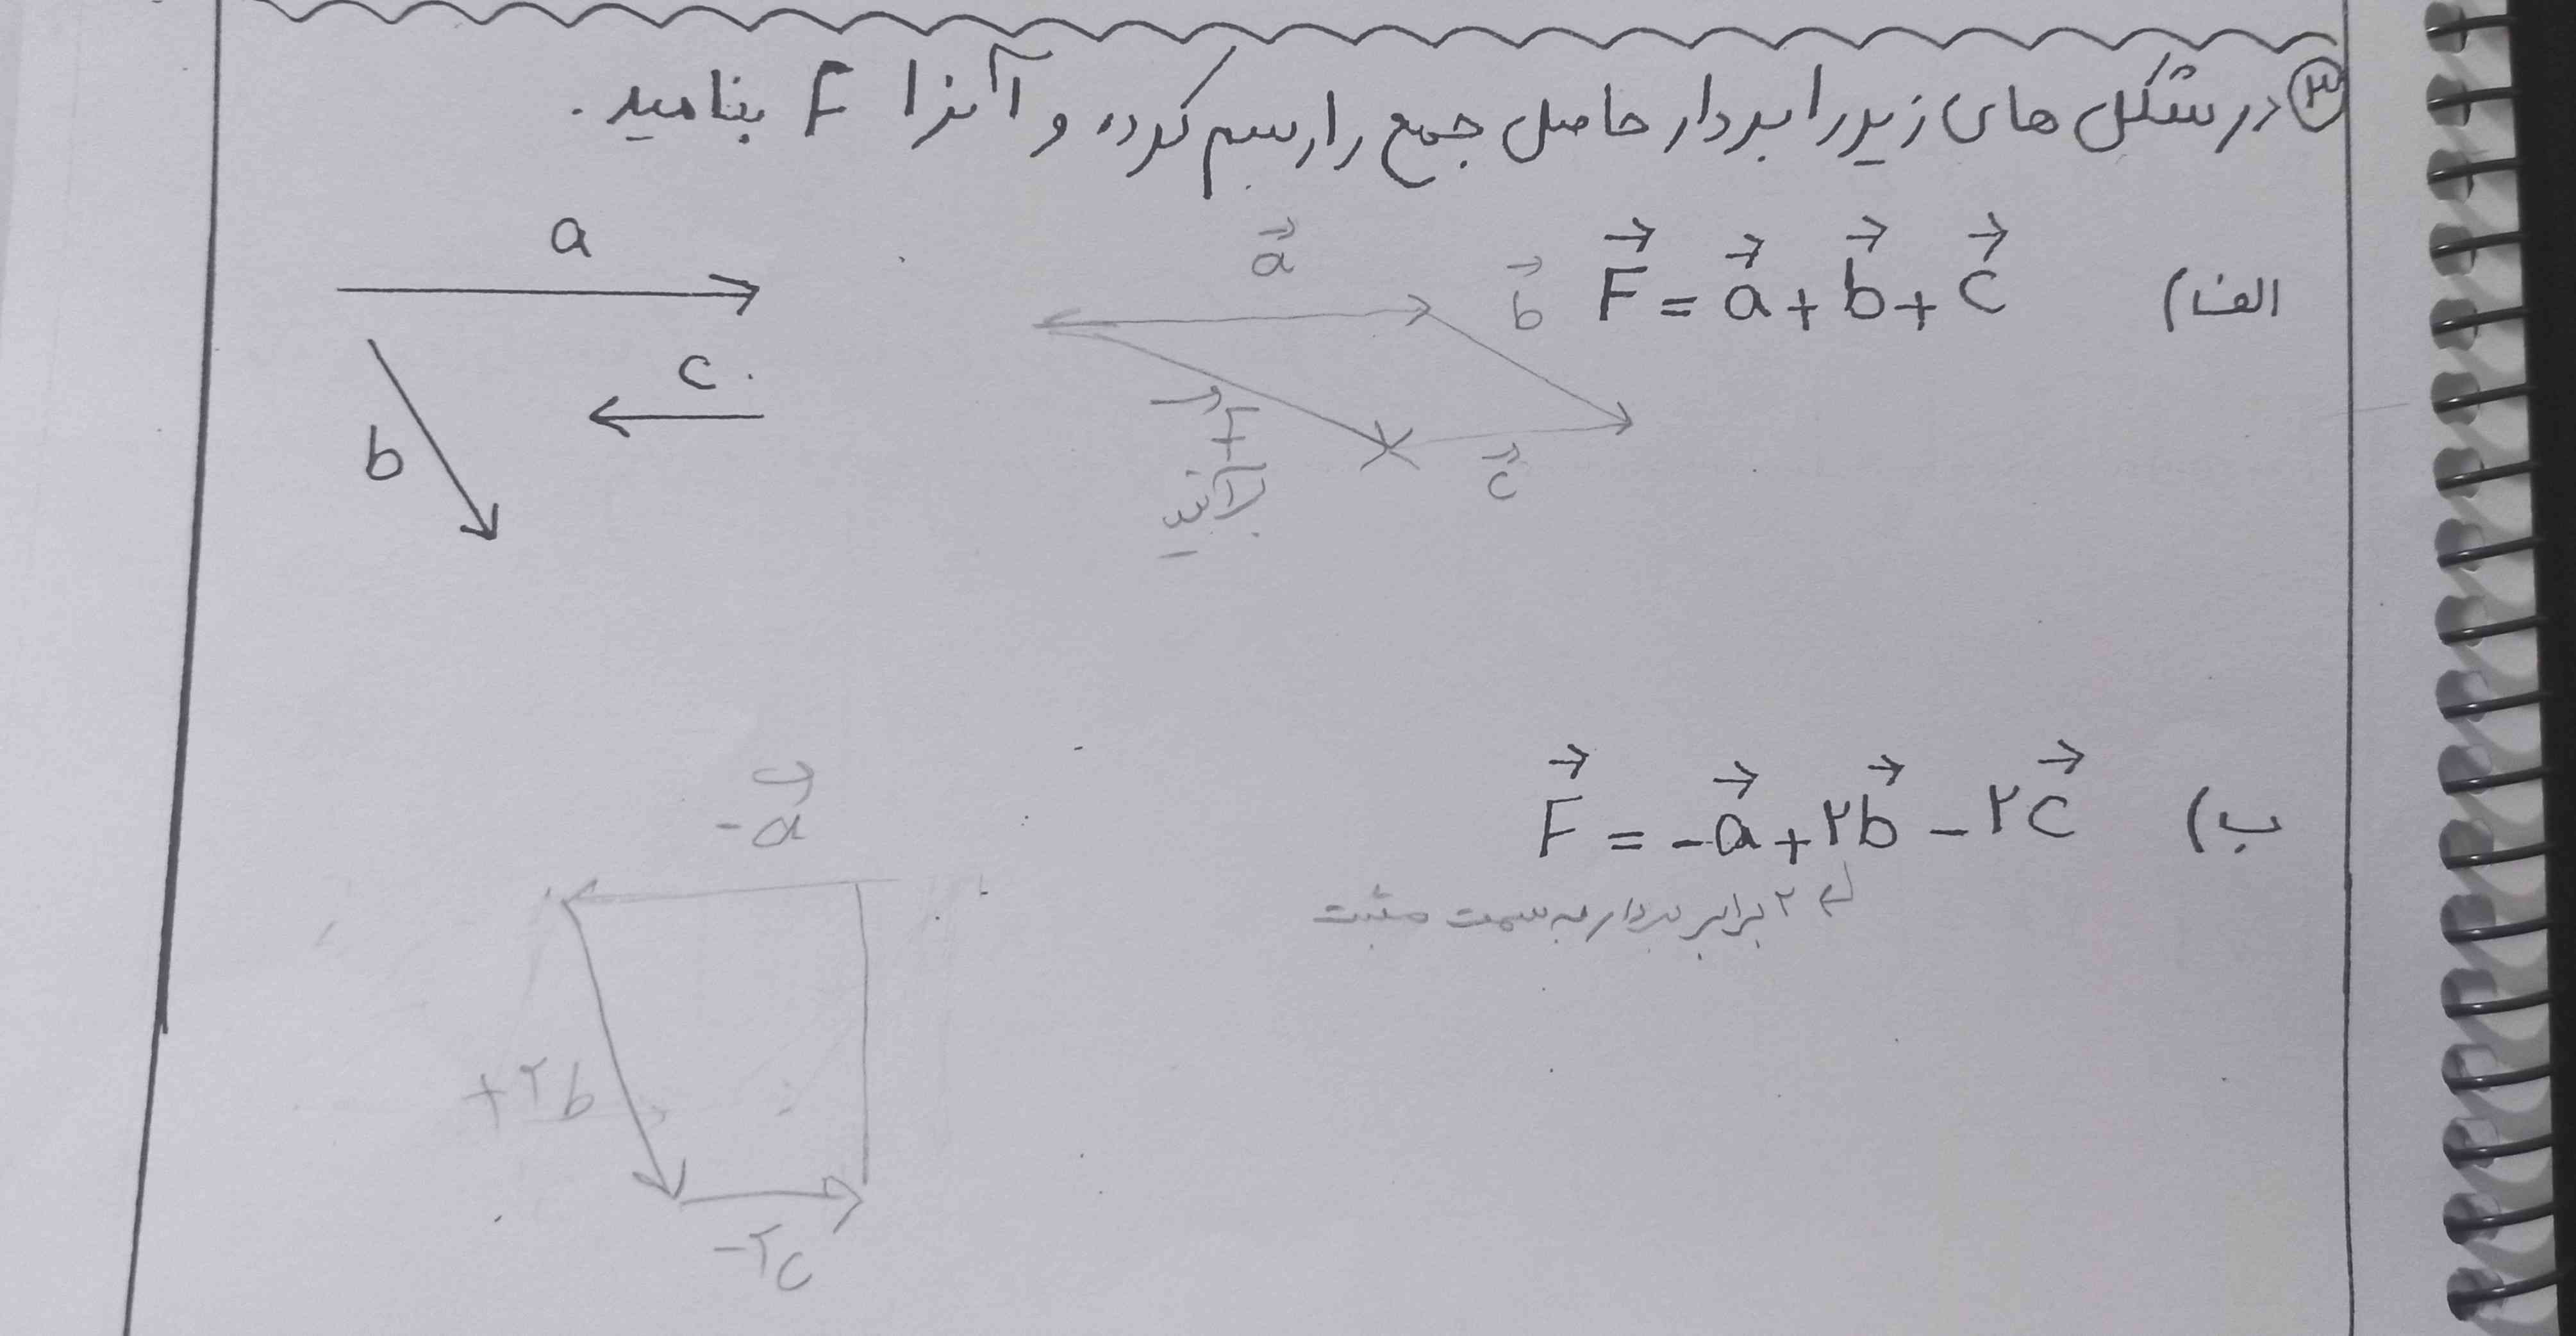 ۳ در شکل های زیر را بردار حاصل جمع را رسم کرده و آنرا F بنامید.
الف) F = a + b + c
a
b
c
a
b
c
F
برآیند
ب) F = -a + ۲b - ۲c
۲ برابر بردار به سمت مثبت
-a
+۲b
-۲c